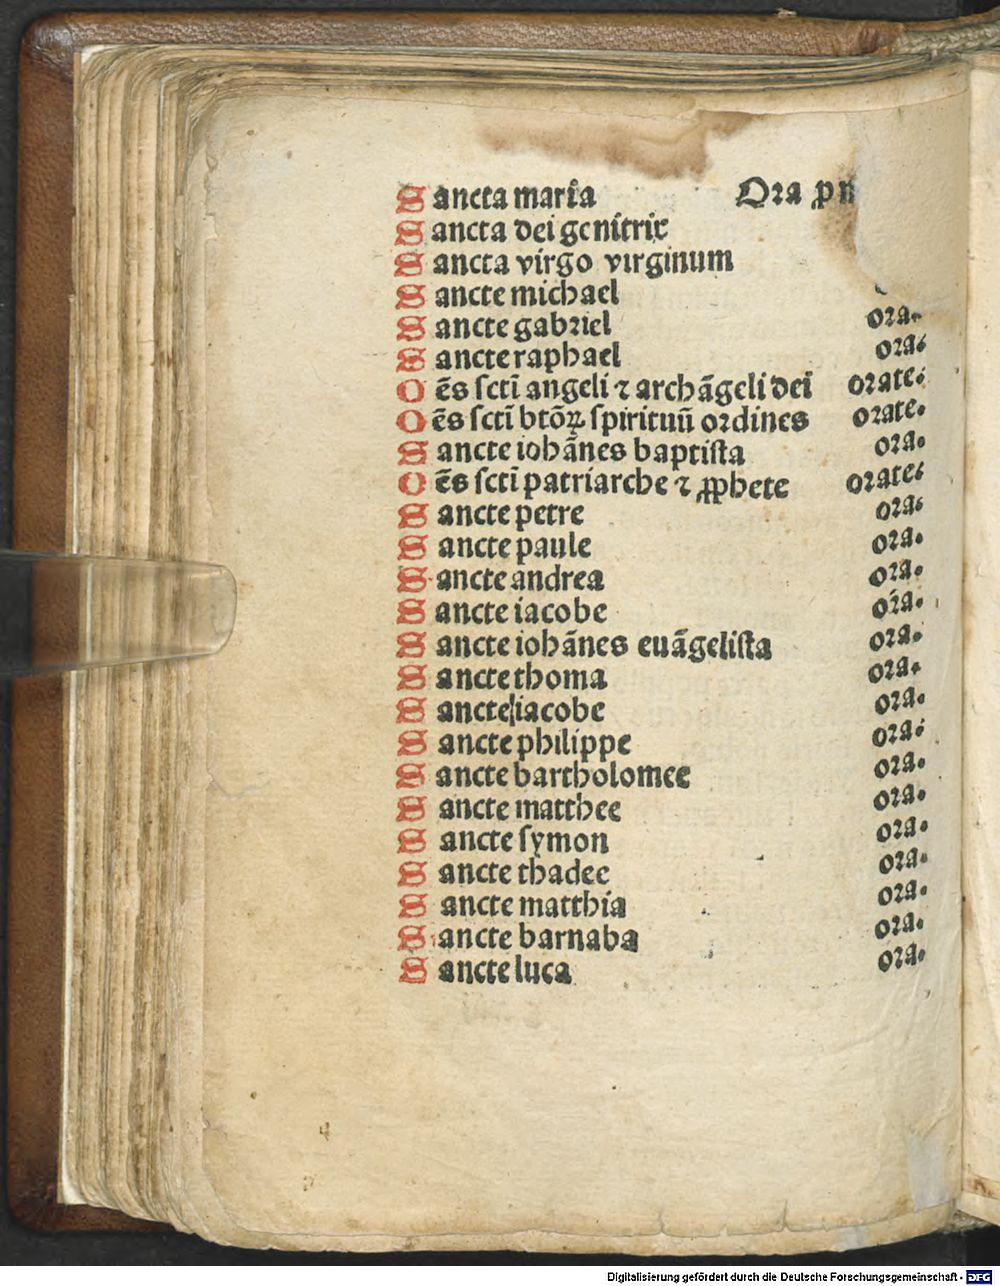 Sancta maria Ora ꝓ n
Sancta dei genitrix
Sancta virgo virginum
Sancte michael
Sancte gabriel ora.
Sancte raphael ora.
Oēs sctī angeli ⁊ archāgeli dei orate.
Oēs sctī btōꝝ spirituū ordines orate.
Sancte iohānes baptista ora.
Oēs sctī patriarche ⁊ ꝓphete orate.
Sancte petre ora.
Sancte paule ora.
Sancte andrea ora.
Sancte iacobe ora.
Sancte iohānes euāgelista ora.
Sancte thoma ora.
Sancte iacobe ora.
Sancte philippe ora.
Sancte bartholomee ora.
Sancte matthee ora.
Sancte symon ora.
Sancte thadee ora.
Sancte matthia ora.
Sancte barnaba ora.
Sancte luca ora.
Digitalisierung gefördert durch die Deutsche Forschungsgemeinschaft - DFG